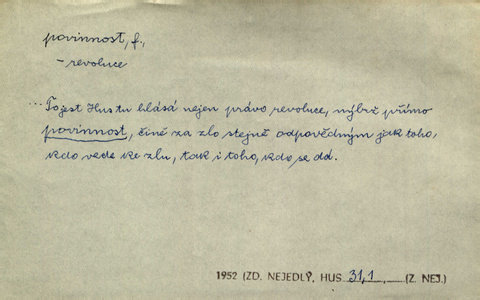 povinnost, f.,
- revoluce
... Tojest Hus tu hlásá nejen právo revoluce, nýbrž přímo
povinnost, čině za zlo stejně odpovědným jak toho,
kdo vede ke zlu, tak i toho, kdo se dá.
1952 (ZD. NEJEDLÝ, HUS 31,1 (Z. NEJ.)